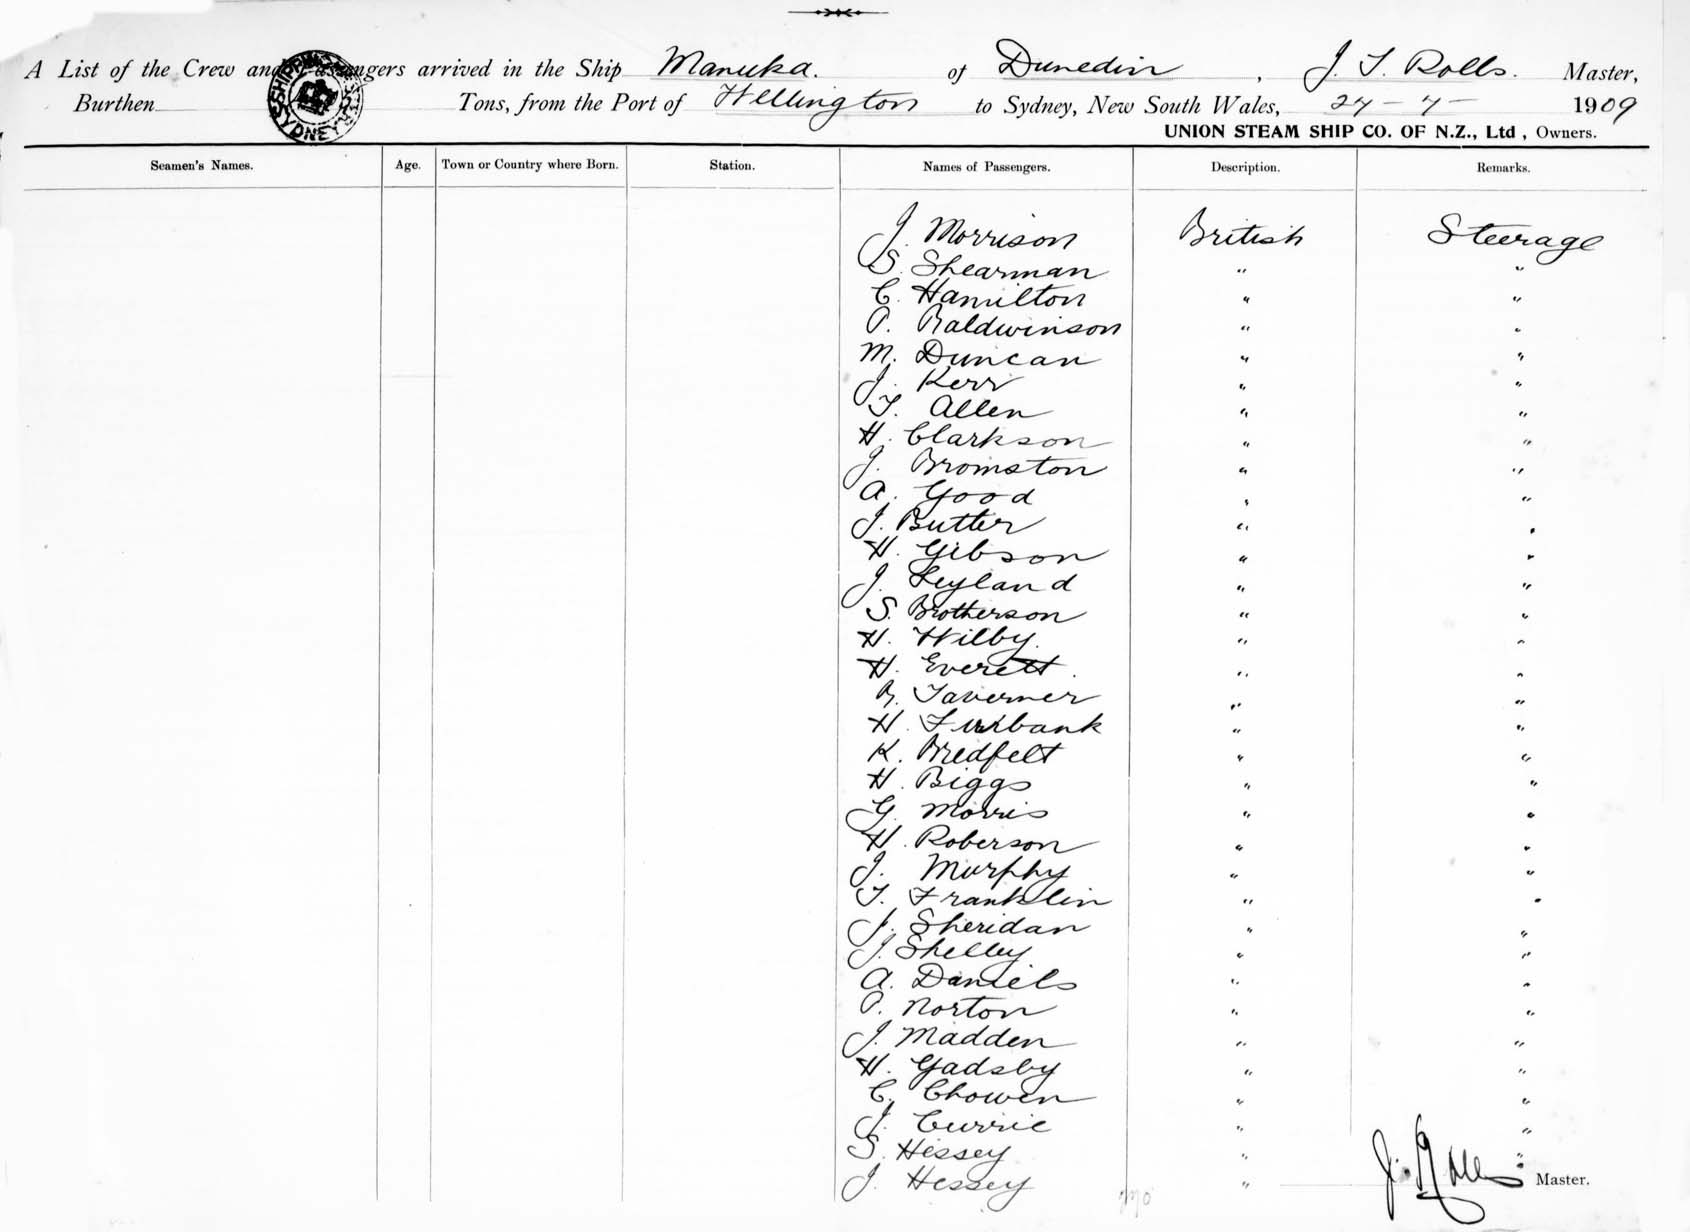 A List of the Crew and Passengers arrived in the Ship Manuka. of Dunedin, J. T. Rolls. Master,
Burthen Tons, from the Port of Wellington to Sydney, New South Wales, 24 - 4 - 1909
UNION STEAM SHIP CO. OF N.Z., Ltd, Owners.
SHIPPING
SYDNEY
Seamen's Names. Age. Town or Country where Born. Station. Names of Passengers. Description. Remarks.
J. Morrison British Steerage
S. Shearman " "
C. Hamilton " "
P. Baldwinson " "
M. Duncan " "
J. Kerr " "
T. Allen " "
H. Clarkson " "
J. Bromston " "
A. Good " "
J. Butter " "
H. Gibson " "
J. Leyland " "
S. Brotherson " "
H. Wilby. " "
H. Everett. " "
B. Taverner " "
H. Furbank " "
K. Bredfelt " "
H. Biggs " "
G. Morris " "
H. Roberson " "
J. Murphy " "
T. Franklin " "
J. Sheridan " "
J. Shelley " "
A. Daniels " "
P. Norton " "
J. Madden " "
H. Gadsby " "
C. Chowen " "
J. Currie " "
S. Hessey " "
J. Hessey " J. Rolls Master.